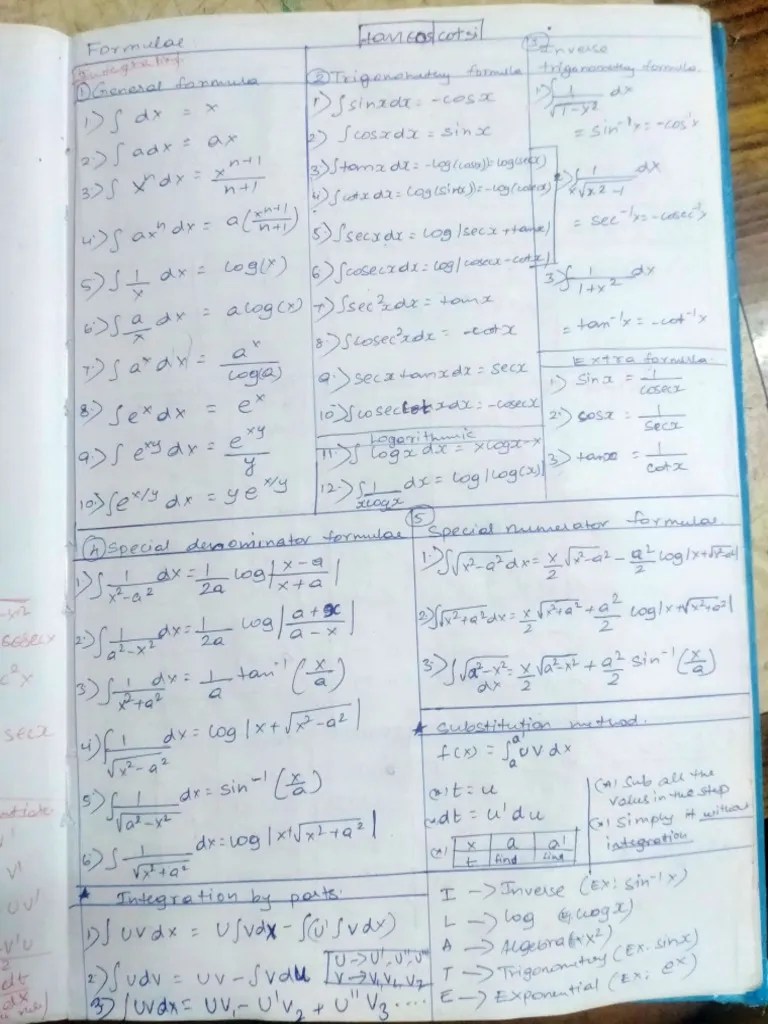 Formulae
tan cos cot si
Integration
① General formula
1) ∫ dx = x
2) ∫ adx = ax
3) ∫ xⁿ dx = xⁿ⁺¹/n+1
4) ∫ axⁿ dx = a(xⁿ⁺¹/n+1)
5) ∫ 1/x dx = log(x)
6) ∫ a/x dx = a log(x)
7) ∫ aˣ dx = aˣ/log(a)
8) ∫ eˣ dx = eˣ
9) ∫ eˣʸ dx = eˣʸ/y
10) ∫ e^x/y dx = y e^x/y
② Trigonometry formula
1) ∫ sinx dx = -cosx
2) ∫ cosx dx = sinx
3) ∫ tanx dx = -log(cosx) = log(secx)
4) ∫ cotx dx = log(sinx) = -log(cosecx)
5) ∫ secx dx = log|secx + tanx|
6) ∫ cosecx dx = log|cosecx - cotx|
7) ∫ sec²x dx = tanx
8) ∫ cosec²x dx = -cotx
9) secx tanx dx = secx
10) ∫ cosec cot x dx = -cosecx
Logorithmic
11) ∫ logx dx = xlogx - x
12) ∫ 1/xlogx dx = log|log(x)|
③ Inverse
trigonometry formula.
1) ∫ 1/√1-x² dx
= sin⁻¹x = -cos⁻¹x
2) ∫ 1/x√x²-1 dx
= sec⁻¹x = -cosec⁻¹x
3) ∫ 1/1+x² dx
= tan⁻¹x = -cot⁻¹x
Extra formula.
1) sinx = 1/cosecx
2) cosx = 1/secx
3) tanx = 1/cotx
④ Special denominator formulae
1) ∫ 1/x²-a² dx = 1/2a log|x-a/x+a|
2) ∫ 1/a²-x² dx = 1/2a log|a+x/a-x|
3) ∫ 1/x²+a² dx = 1/a tan⁻¹(x/a)
4) ∫ 1/√x²-a² dx = log|x+√x²-a²|
5) ∫ 1/√a²-x² dx = sin⁻¹(x/a)
6) ∫ 1/√x²+a² dx = log|x+√x²+a²|
⑤ Special numerator formulae.
1) ∫√x²-a² dx = x/2 √x²-a² - a²/2 log|x+√x²-a²|
2) ∫√x²+a² dx = x/2 √x²+a² + a²/2 log|x+√x²+a²|
3) ∫√a²-x² dx = x/2 √a²-x² + a²/2 sin⁻¹(x/a)
★ Substitution method.
f(x) = ∫ₐᵃ' UV dx
(*) t = u
(*) dt = u' du
(*) x a a'
t find find
(*) Sub all the
values in the step
(*) Simply it without
integration
★ Integration by parts.
1) ∫ UV dx = U∫V dx - ∫(U'∫V dx)
2) ∫ Udv = UV - ∫Vdu
U → U', U'', U'''
V → V₁, V₂, V₃
3) ∫ UV dx = UV₁ - U'V₂ + U''V₃ ....
I → Inverse (Ex: sin⁻¹x)
L → log (Ex: logx)
A → Algebra (Ex: x²)
T → Trigonometry (Ex. sinx)
E → Exponential (Ex: eˣ)
secx